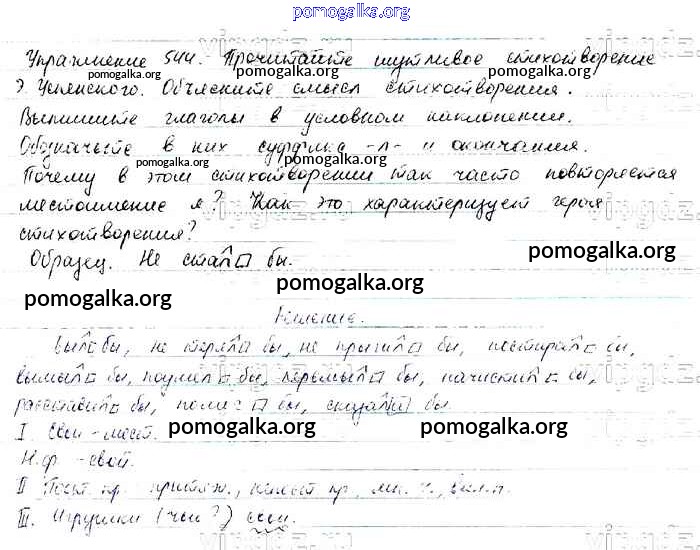 pomogalka.org
Упражнение 544. Прочитайте шутливое стихотворение
pomogalka.org pomogalka.org
Э. Успенского. Объясните смысл стихотворения.
Выпишите глаголы в условном наклонении.
Обозначьте в них суффикс -л- и окончания.
pomogalka.org pomogalka.org
Почему в этом стихотворении так часто повторяется
местоимение я? Как это характеризует героя
стихотворения?
pomogalka.org
Образец. Не стал бы.
pomogalka.org
Решение.
бы, не терял бы, не бы, постирал бы,
вымыл бы, бы, бы, начистил бы,
расставил бы, бы, бы.
I. Свои - мест. pomogalka.org pomogalka.org
Н.ф. - свой.
II Пост. пр. притяж., мн. ч., вин. п.
III. Игрушки (чьи?) свои.